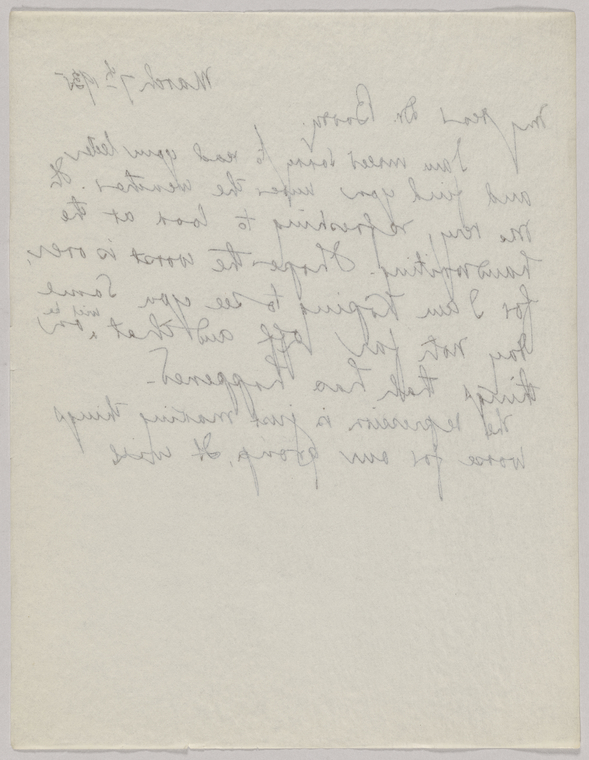 March 7th 1935
My dear Dr. Borry.
I am most sorry to read your letter
and find you under the weather. It
me very refreshing to look at the
handwriting. I hope the worst is over,
for I am hoping to see you some
day not far off and that,
things has happened -
the depression is just making things
worse for our group, It will